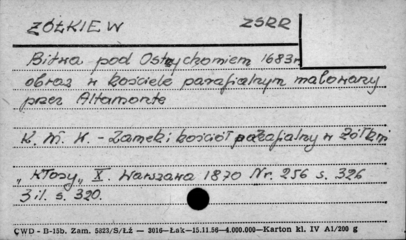 ZÓŁKIEW ZSRR
Bitwa pod Ostrzychomiem 1683r
obraz w kościele parafialnym malowany
przez Altamonte
K. W. K. - Zamek i kościół parafialny w Żółkwi
"Kłosy" X. Warszawa 1870 Nr. 256 s. 326
3 il. s. 320.
ÇWD - B-15b. Zam. 5823/S/ŁŻ — 3016—Łak—15.11.56—4.000.000—Karton kl. IV A1/200 g